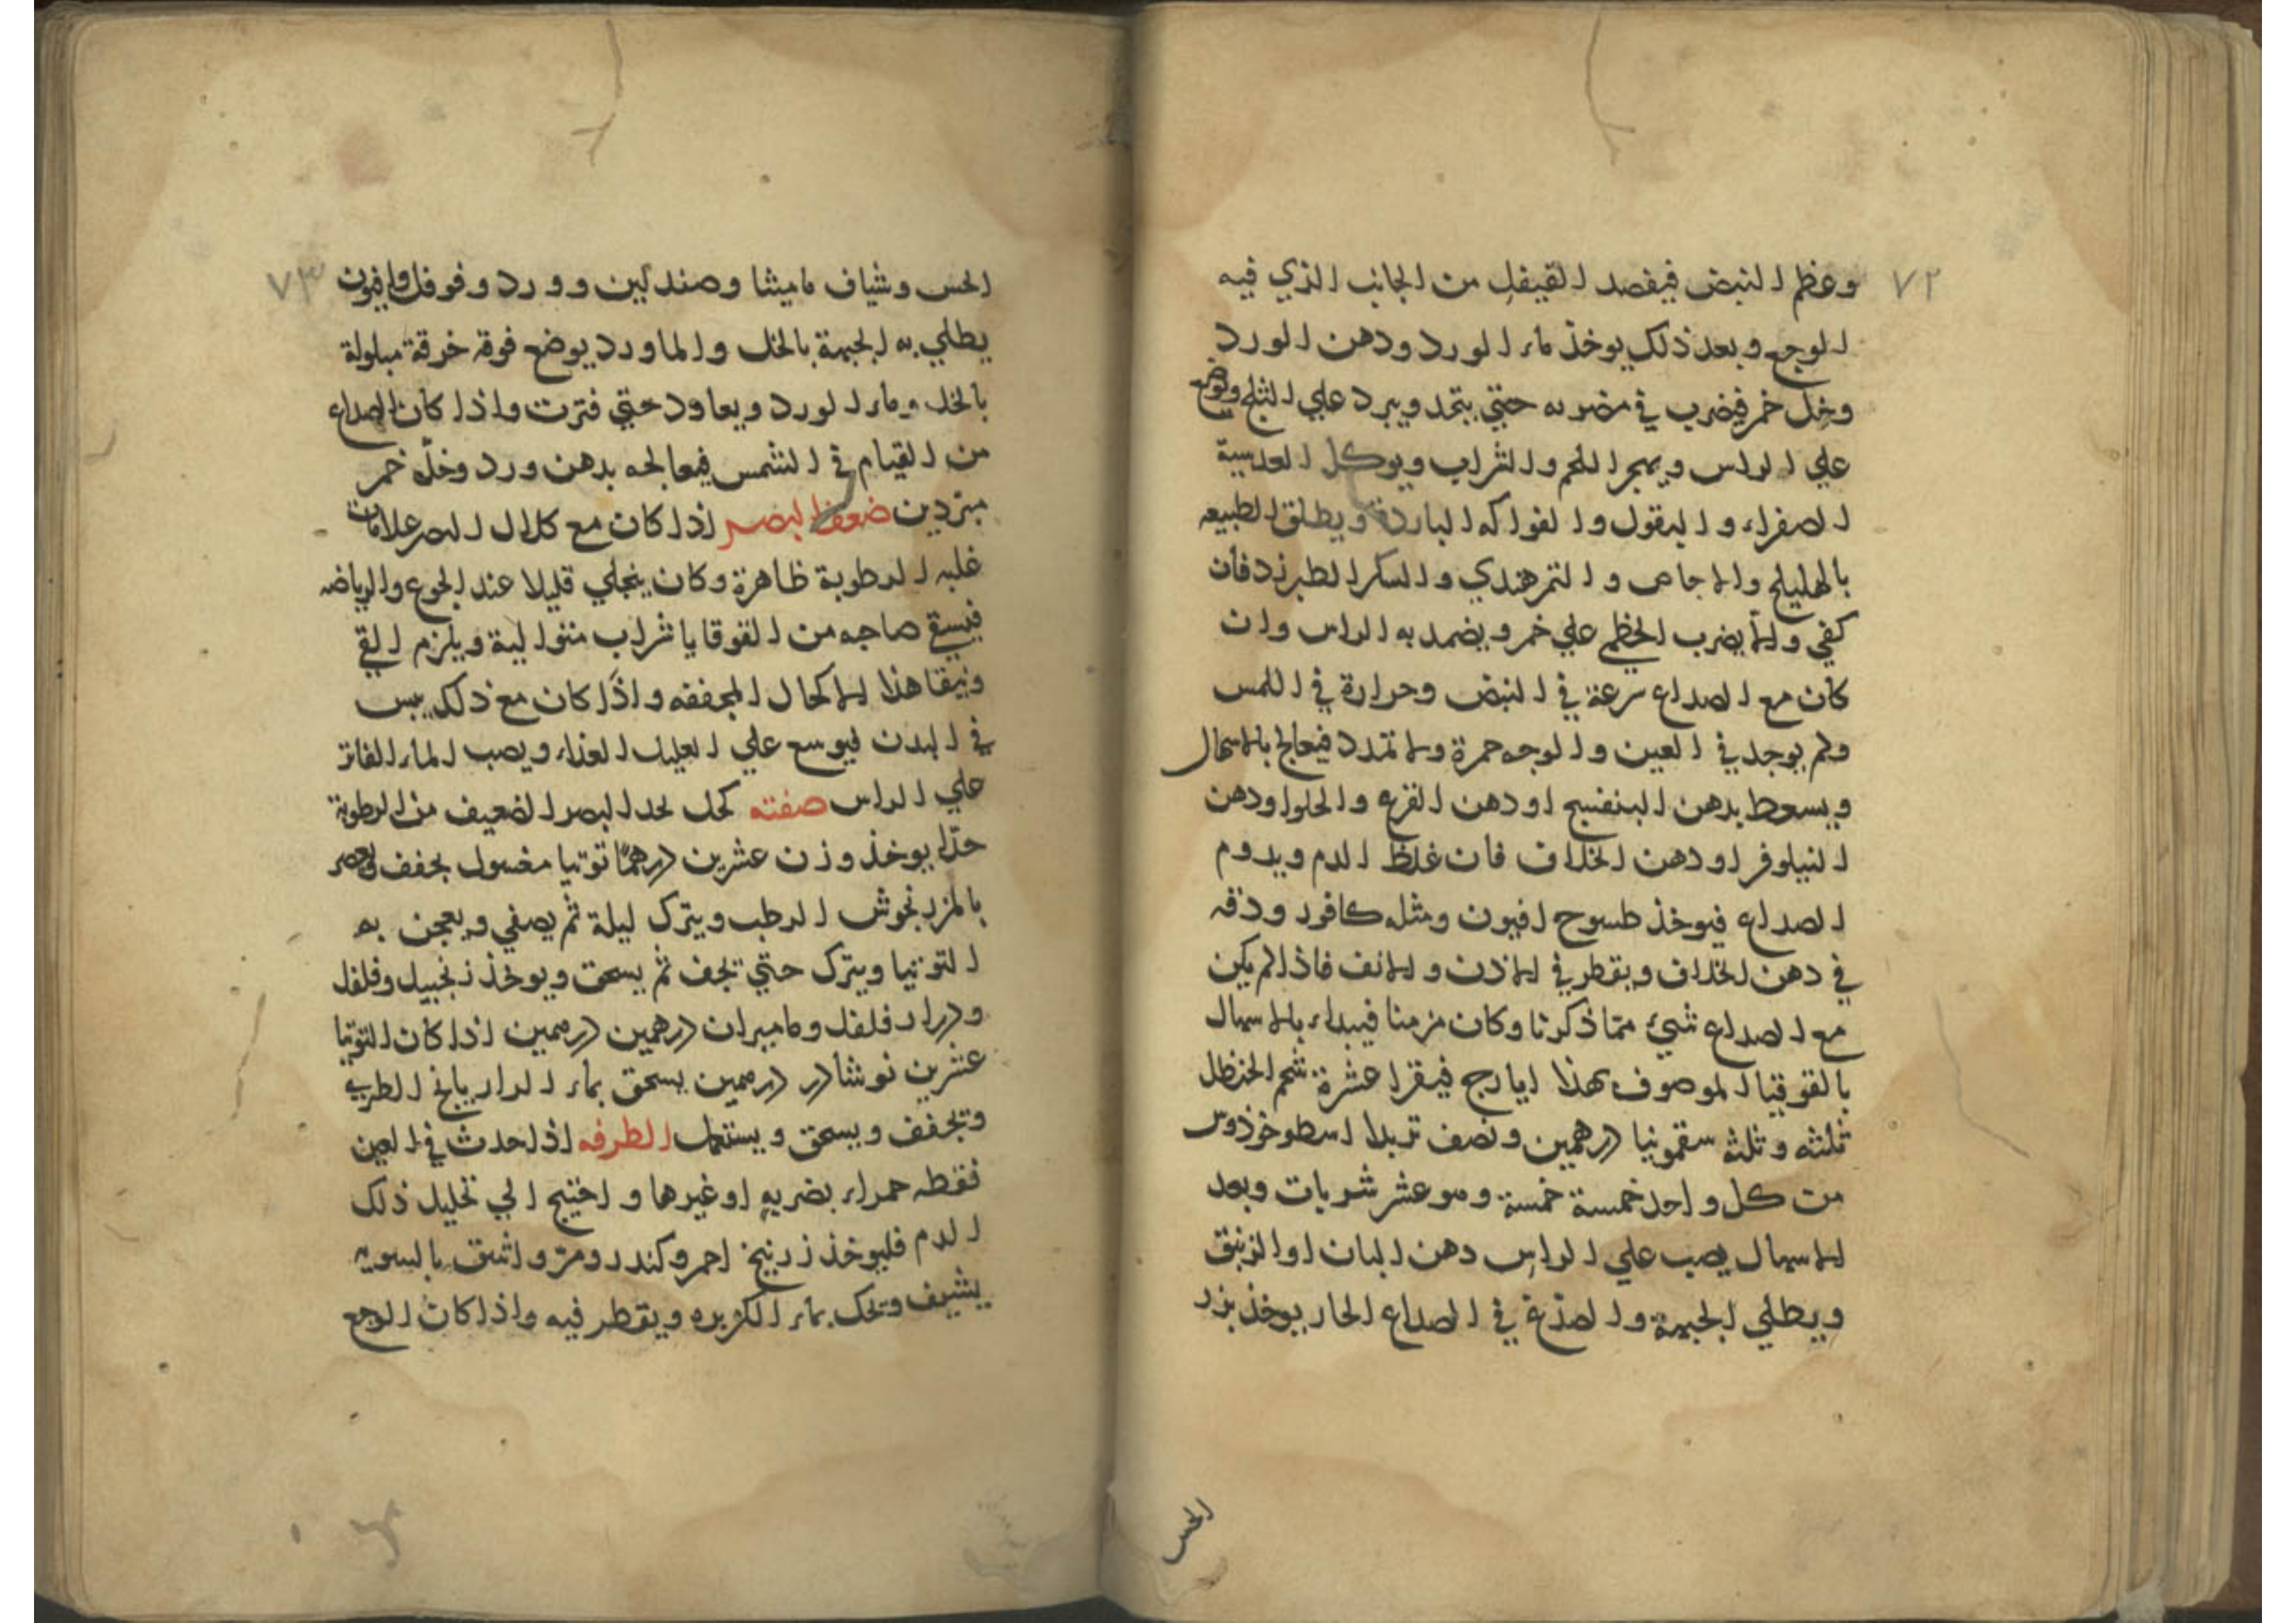 ٧٢
وعظم النبض فيفصد القيفل من الجانب الذي فيه
الوجع وبعد ذلك يوخذ ماء الورد ودهن الورد
وخل خمر فيضرب في مضربه حتي يتحد ويبرد علي الثلج ويوضع
علي الراس ويهجر اللحم والشراب ويوكل العدسية
الصفراء والبقول والفواكه الباردة ويطلق الطبيعه
بالهليلج والاجاص والتمرهندي والسكر الطبرزد فان
كفي والا يضرب الخطمي علي خمر ويضمد به الراس وان
كان مع الصداع سرعة في النبض وحرارة في اللمس
ولم يوجد في العين والوجه حمرة ولا تمدد فيعالج بالاسهال
ويسعط بدهن البنفسج اودهن القرع والحلوا ودهن
النيلوفر اودهن الخلاف فان غلظ الدم ويدوم
الصداع فيوخذ طسوح افيون ومثله كافور ودقه
في دهن الخلاف ويقطر في الاذن والانف فاذا لم يكن
مع الصداع شيئ مما ذكرنا وكان مزمنا فيبداء بالاسهال
بالقوقيا الموصوف بهذا ايارج فيقرا عشرة شحم الحنظل
ثلثه وثلثه سقمونيا درهمين ونصف تربدا اسطوخوذوس
من كل واحد خمسة خمسة وهو عشر شربات وبعد
الاسهال يصب علي الراس دهن البان اوالزنبق
ويطلي الجبهة والصدغ في الصداع الحار يوخذ بزر
الخس
٧٣
الخس وشياف ماميثا وصندلين وورد وفوفل وافيون
يطلي به الجبهة بالخل والماورد يوضع فوقه خرقة مبلولة
بالخل وماء الورد ويعاود حتي فترت واذا كان الصداع
من القيام في الشمس فيعالجه بدهن ورد وخل خمر
مبردين ضعف البصر اذا كان مع كلال البصر علامات
غلبه الرطوبة ظاهرة وكان ينجلي قليلا عند الجوع والرياضه
فيسقي صاحبه من القوقايا شراب متوالية ويلزم القي
وتيقا هذا الاكحال المجففه واذا كان مع ذلك يبس
في البدن فيوسع علي العليل الغذاء ويصب الماء الفاتر
علي الراس صفته كحل لحد البصر الضعيف من الرطوبة
حدا يوخذ وزن عشرين درهما توتيا مغسول يجفف ويعصر
بالمرزنجوش الرطب ويترك ليلة ثم يصفي ويعجن به
التوتيا ويترك حتي تجف ثم يسحق ويوخذ زنجبيل وفلفل
ودار فلفل وماميران درهمين درهمين اذا كان التوتيا
عشرين نوشادر درهمين يسحق بماء الرازيانج الطري
وتجفف ويسحق ويستعمل الطرفه اذا حدث في العين
نقطه حمراء بضربه اوغيرها واحتيج الي تحليل ذلك
الدم فليوخذ زرنيخ احمر وكندر ومر واشق بالسويه
يشيف وتحك بماء الكزبره ويقطر فيه واذا كان الوجع